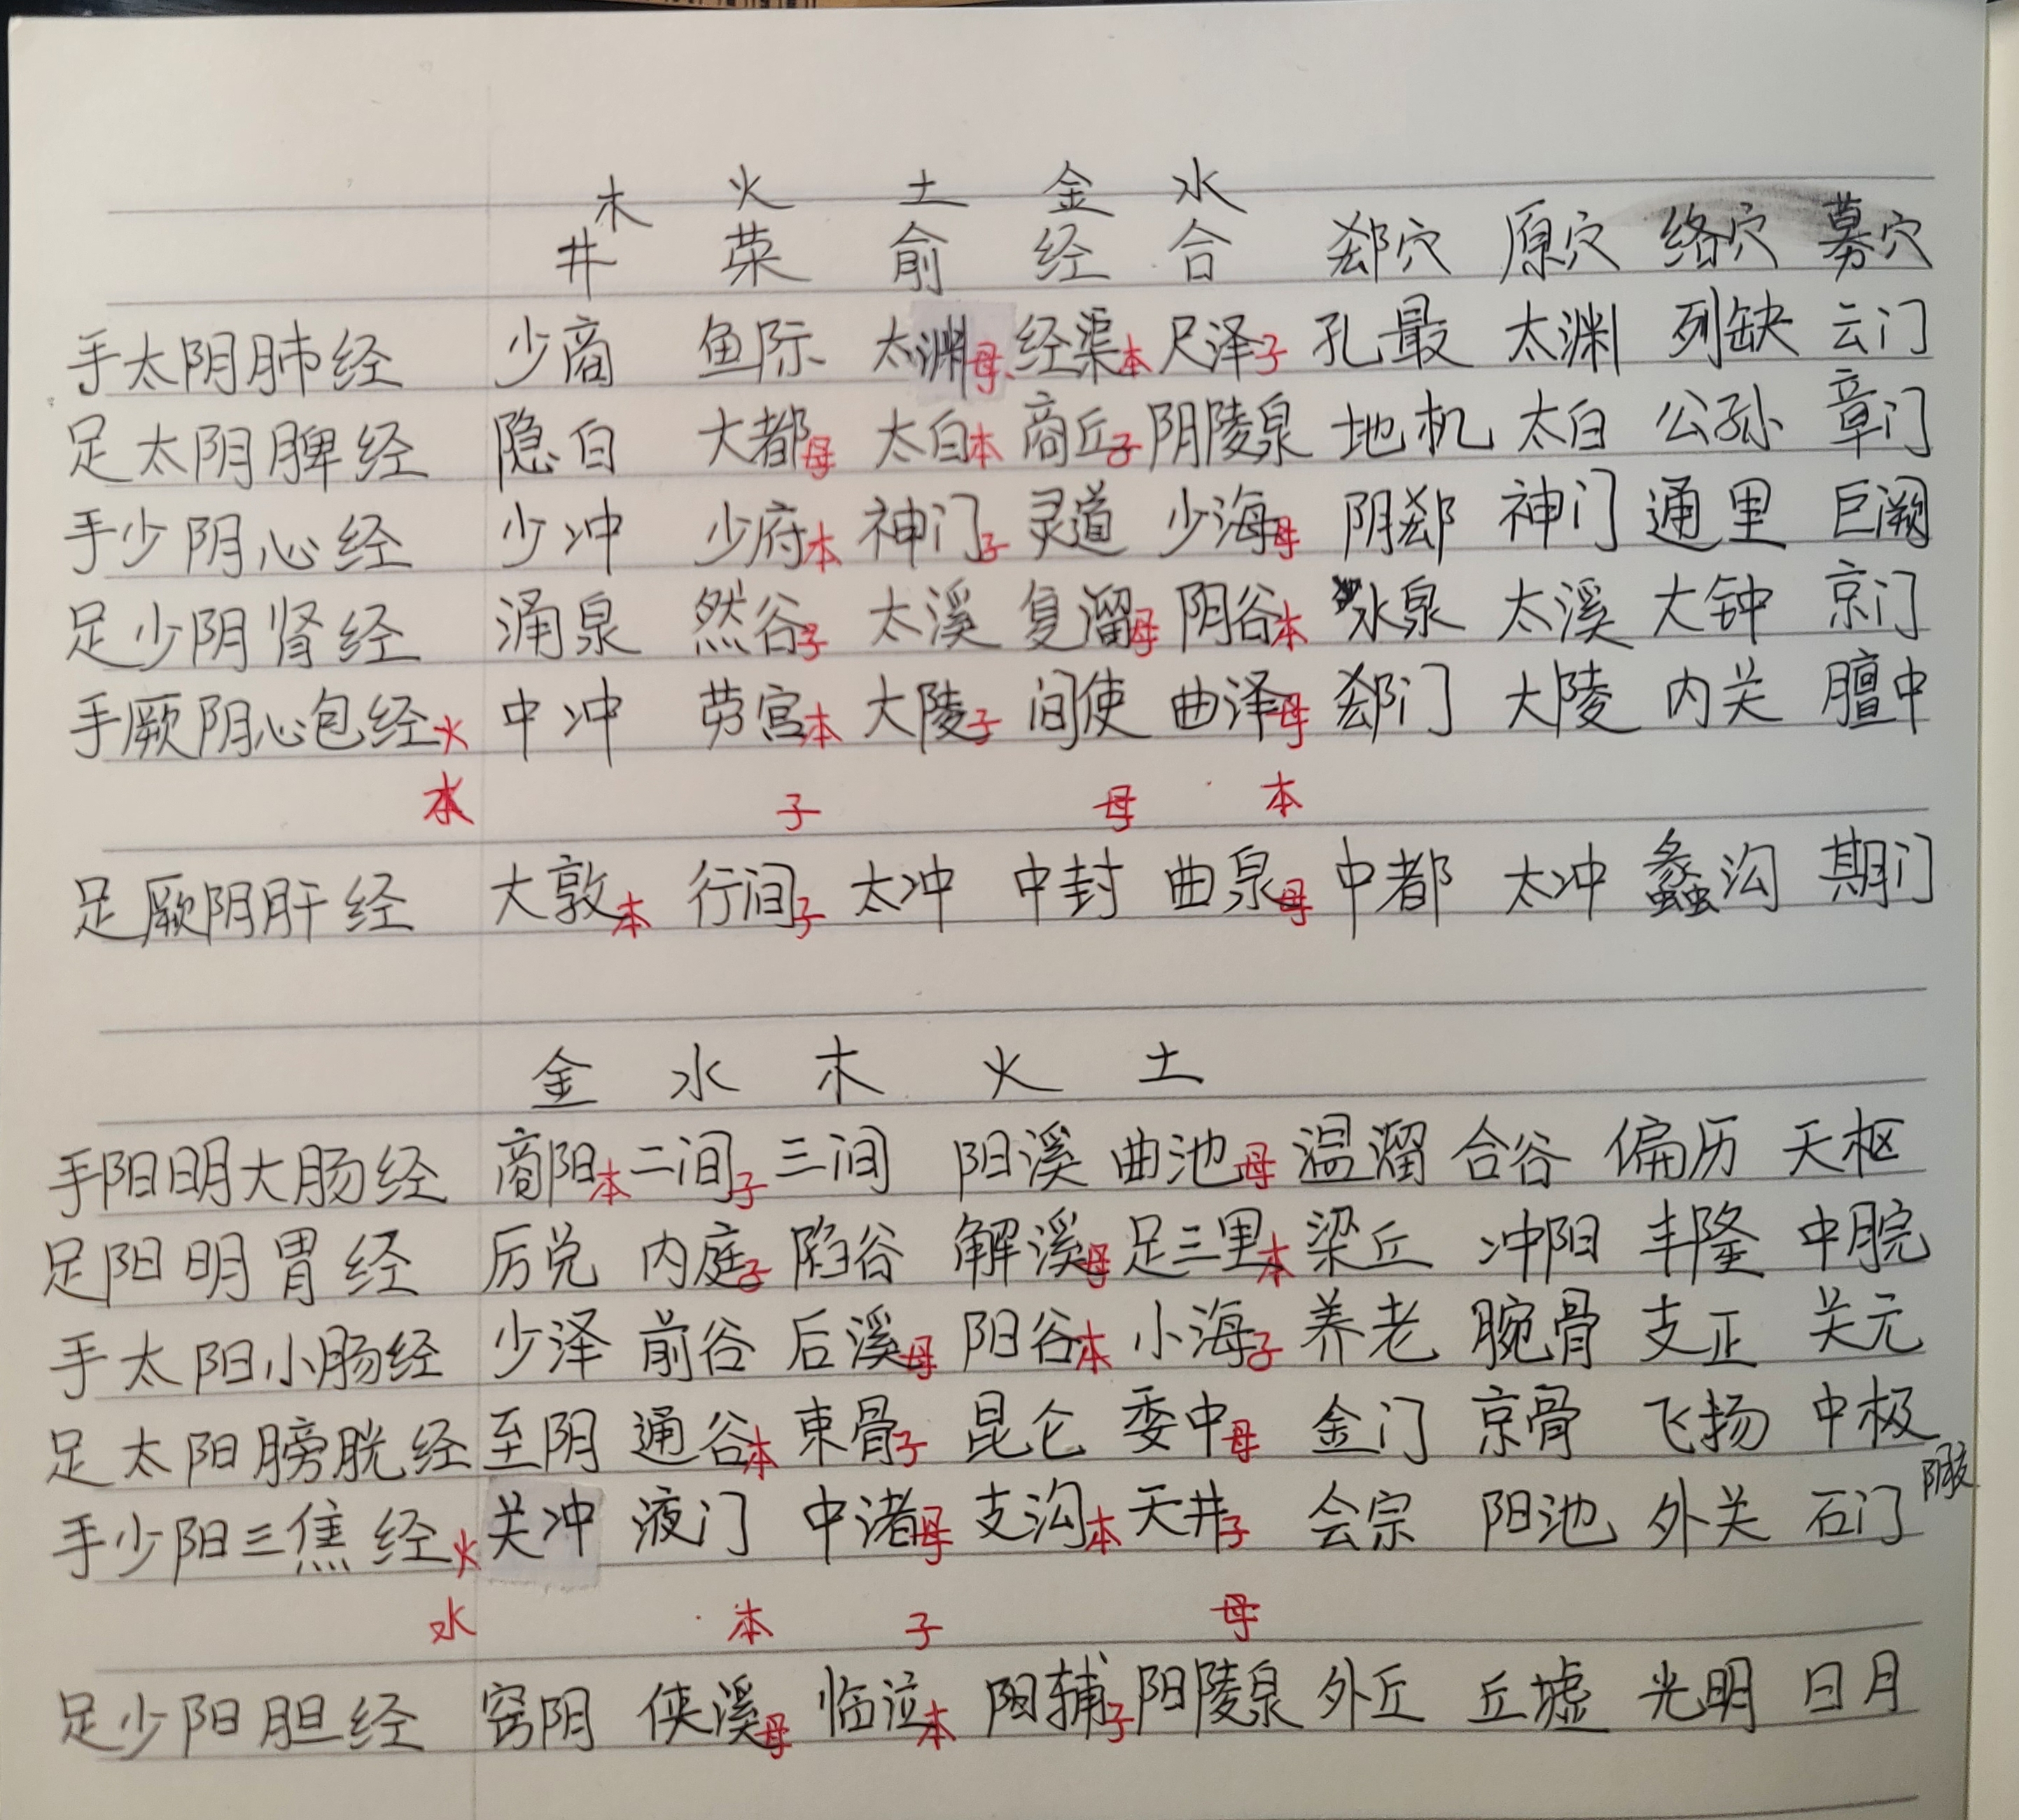 木 火 土 金 水
井 荥 俞 经 合 郄穴 原穴 络穴 募穴
手太阴肺经 少商 鱼际 太渊母 经渠本 尺泽子 孔最 太渊 列缺 云门
足太阴脾经 隐白 大都母 太白本 商丘子 阴陵泉 地机 太白 公孙 章门
手少阴心经 少冲 少府本 神门子 灵道 少海母 阴郄 神门 通里 巨阙
足少阴肾经 涌泉 然谷子 太溪 复溜母 阴谷本 水泉 太溪 大钟 京门
手厥阴心包经火 中冲 劳宫本 大陵子 间使 曲泽母 郄门 大陵 内关 膻中
水 子 母 本
足厥阴肝经 大敦本 行间子 太冲 中封 曲泉母 中都 太冲 蠡沟 期门
金 水 木 火 土
手阳明大肠经 商阳本 二间子 三间 阳溪 曲池母 温溜 合谷 偏历 天枢
足阳明胃经 厉兑 内庭子 陷谷 解溪母 足三里本 梁丘 冲阳 丰隆 中脘
手太阳小肠经 少泽 前谷 后溪母 阳谷本 小海子 养老 腕骨 支正 关元
足太阳膀胱经 至阴 通谷本 束骨子 昆仑 委中母 金门 京骨 飞扬 中极
手少阳三焦经火 关冲 液门 中渚母 支沟本 天井子 会宗 阳池 外关 石门
水 本 子 母
足少阳胆经 窍阴 侠溪母 临泣本 阳辅子 阳陵泉 外丘 丘墟 光明 日月